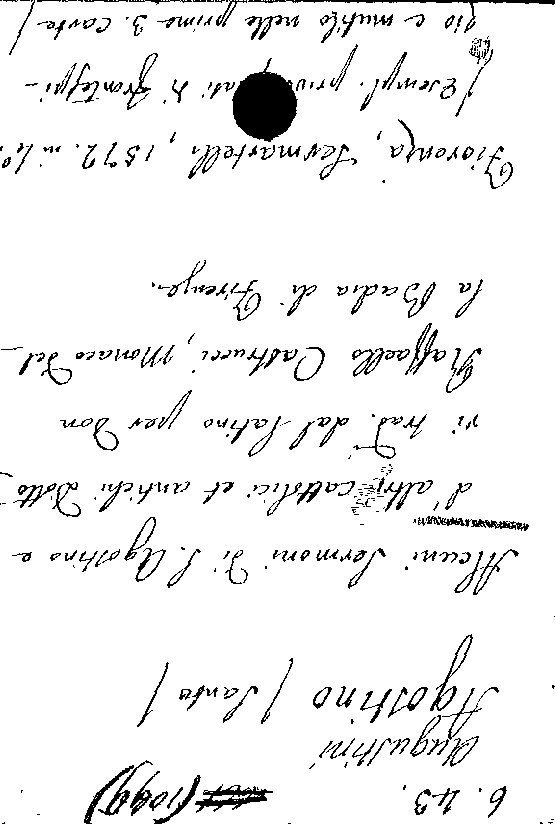 6. 43.
Augustini
Agostino (Santo)
Alcuni Sermoni di S. Agostino e
d'altri cattolici et antichi Dotto-
ri trad. dal latino per Don
Raffaello Castrucci, Monaco del-
la Badia di Firenze.
Fiorenza, Sermartelli, 1572. in 4º
(Esempl. privo di Frontespi-
zio e mutilo nelle prime 3. carte)